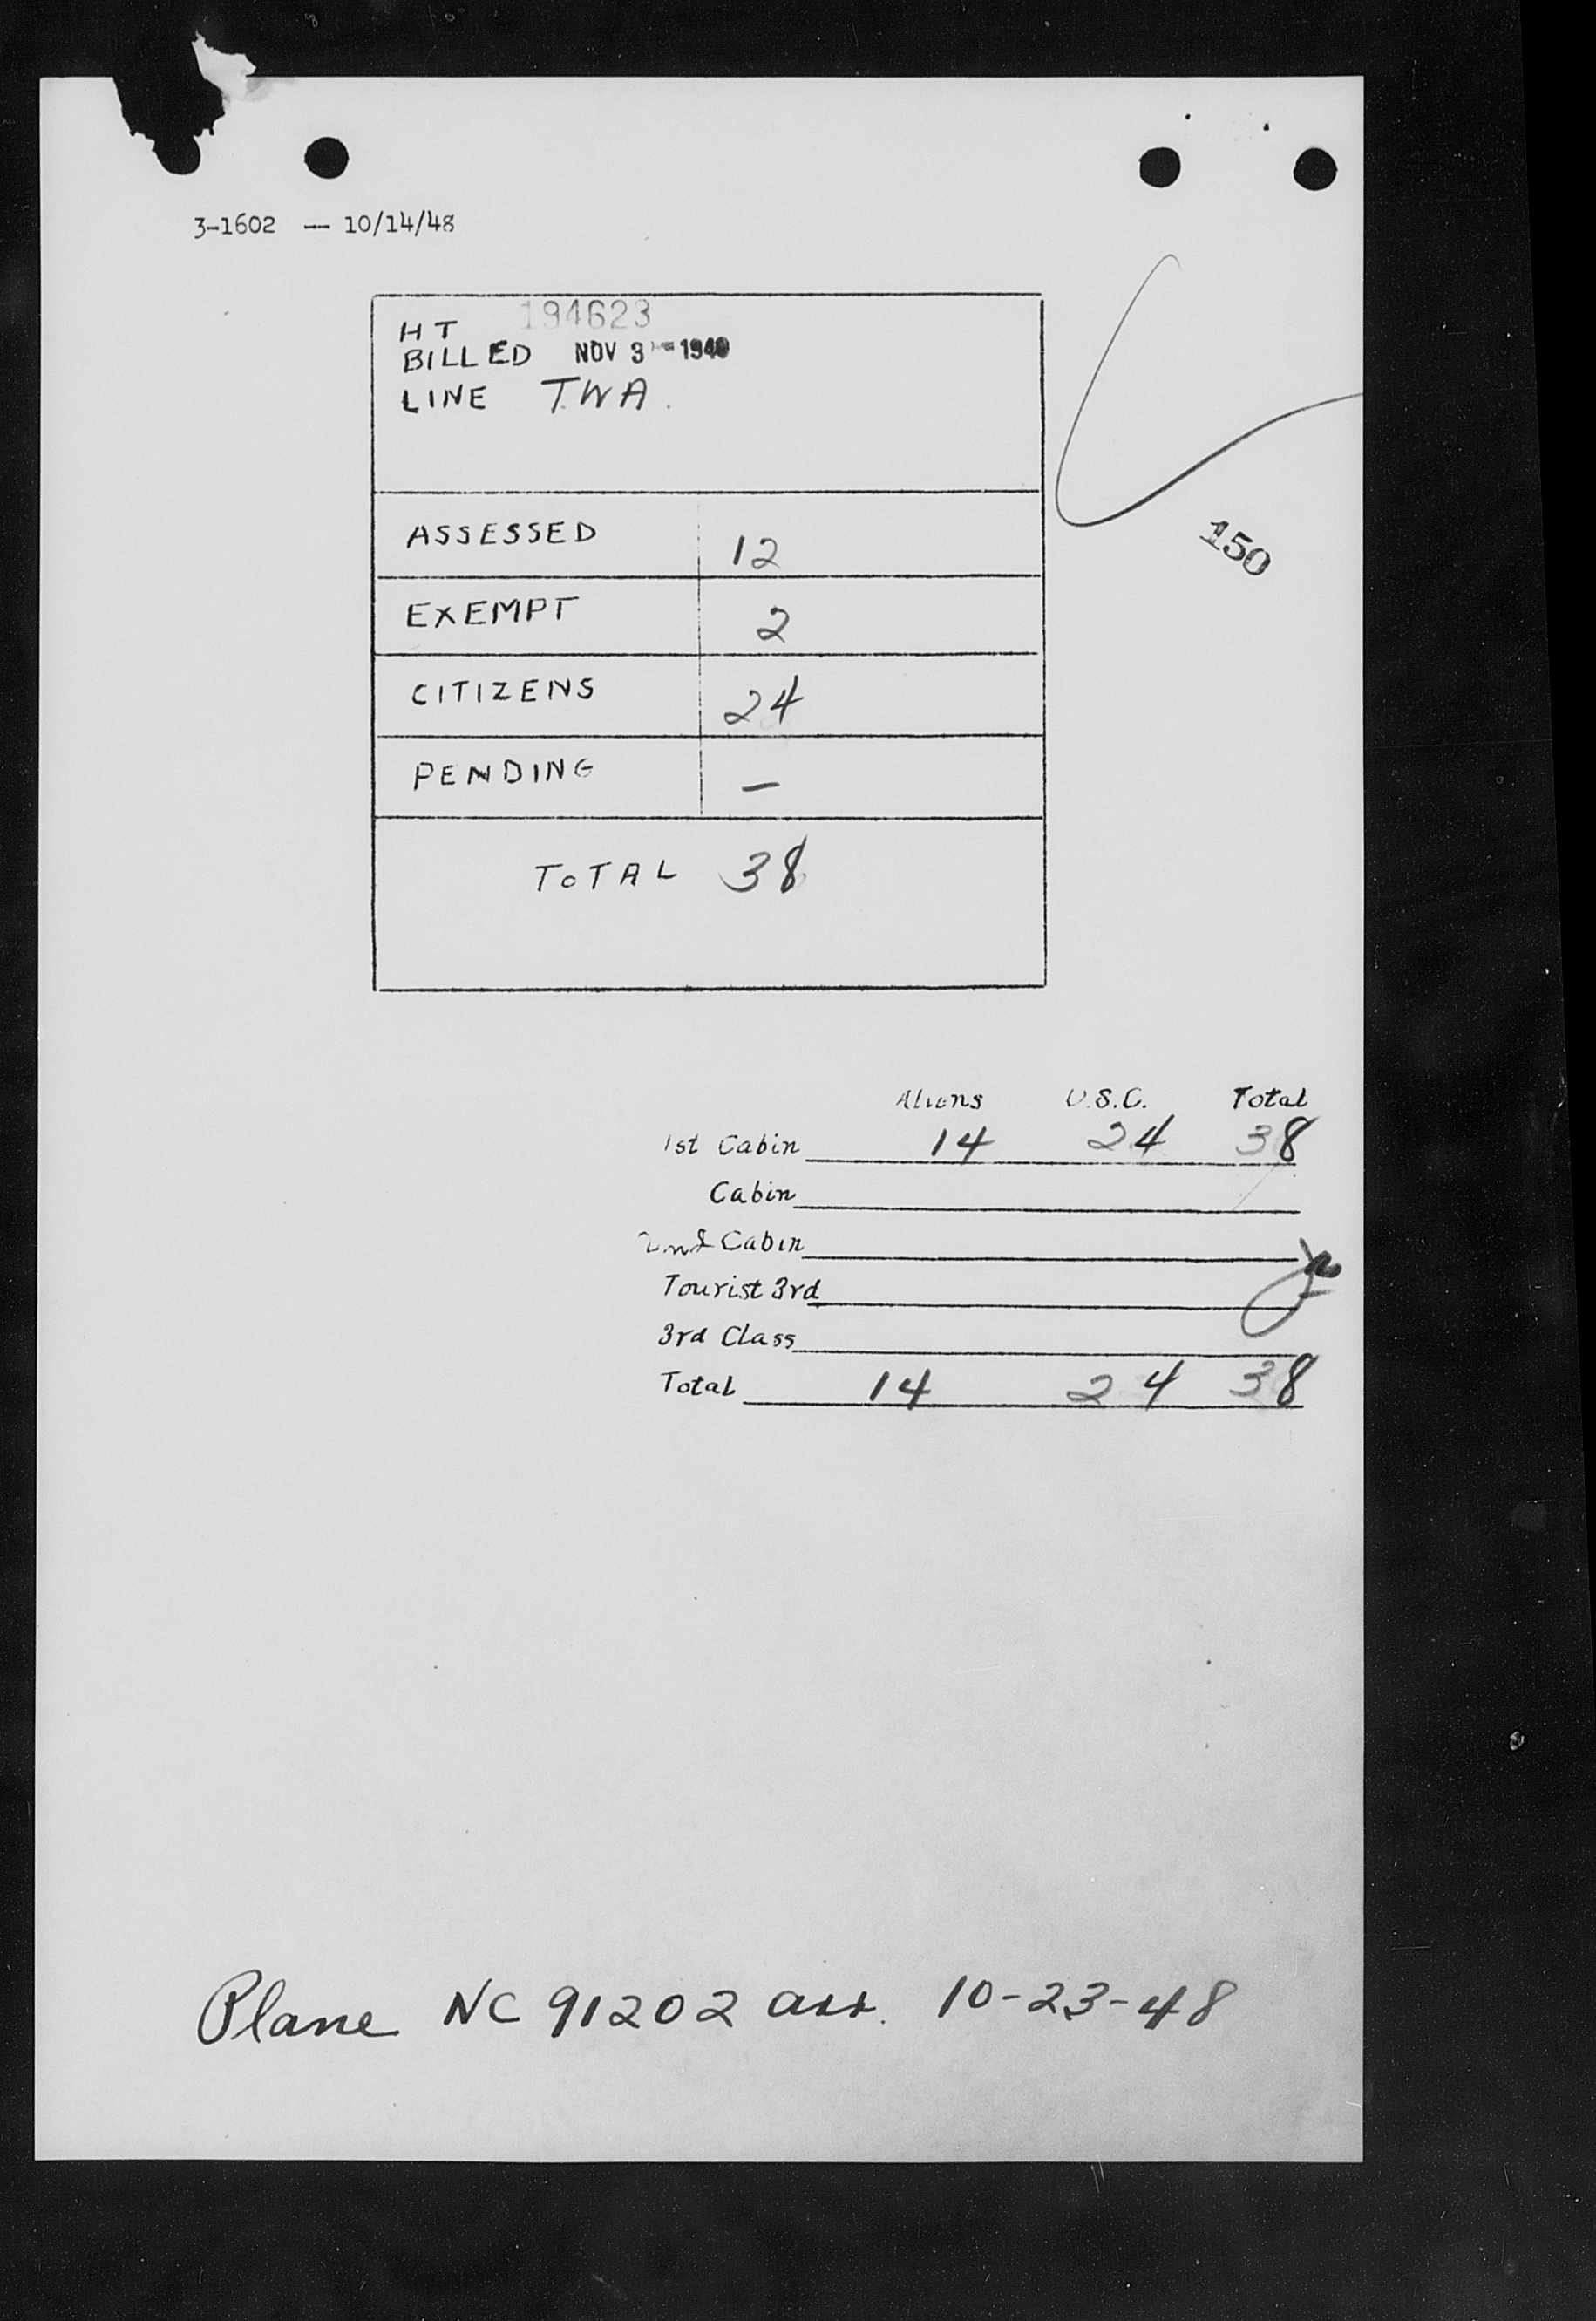 3-1602 — 10/14/48
194623
HT
BILLED NOV 3 - 1948
LINE TWA.
150
ASSESSED 12
EXEMPT 2
CITIZENS 24
PENDING —
TOTAL 38
Aliens U.S.C. Total
1st Cabin 14 24 38
Cabin
2nd Cabin
Tourist 3rd
3rd Class
Total 14 24 38
Plane NC 91202 arr. 10-23-48